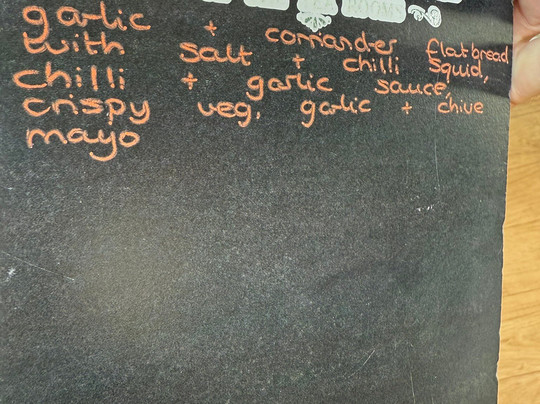 TEA ROOMS
garlic + coriander flatbread
with salt + chilli squid,
chilli + garlic sauce,
crispy veg, garlic + chive
mayo